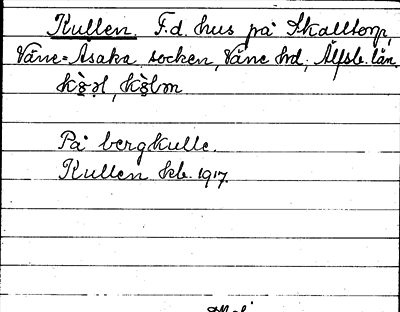 Kullen F.d. hus på Skalltorp,
Väne-Åsaka socken, Väne hrd, Älfsb. län.
På bergkulle.
Kullen kb. 1917.